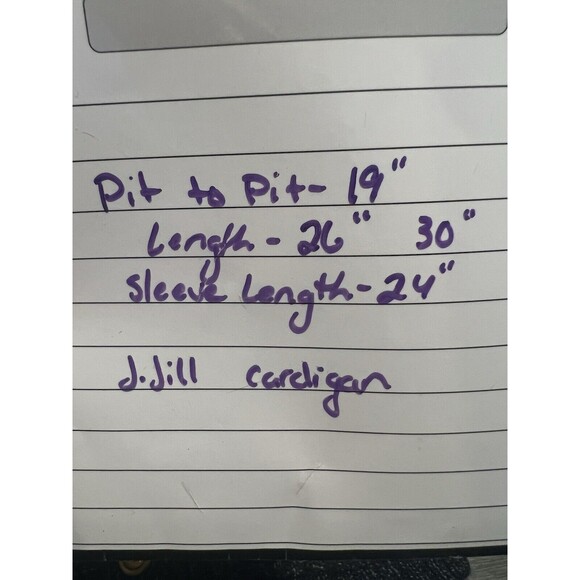 Pit to Pit- 19"
Length - 26" 30"
Sleeve Length - 24"
J.Jill cardigan